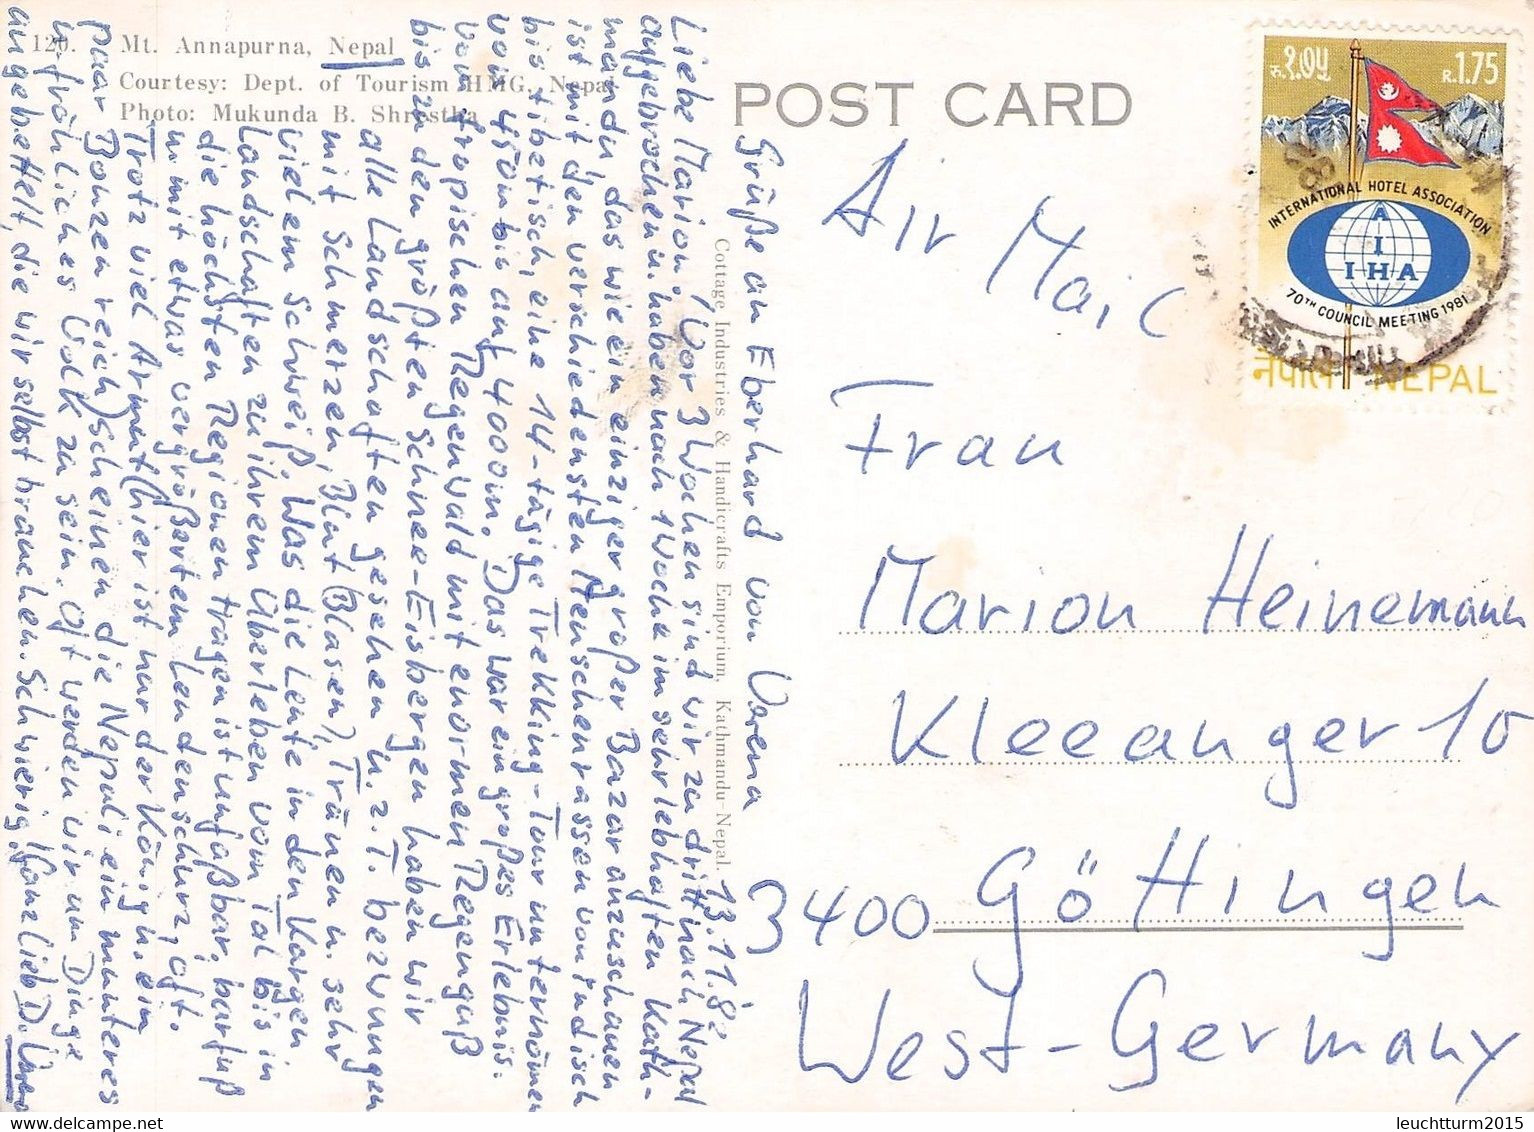 120. Mt. Annapurna, Nepal
Courtesy: Dept. of Tourism HMG, Nepal
Photo: Mukunda B. Shrestha
POST CARD
रु. १.७५
R.1.75
INTERNATIONAL HOTEL ASSOCIATION
A
I
I H A
70TH COUNCIL MEETING 1981
नेपाल NEPAL
Cottage Industries & Handicrafts Emporium, Kathmandu-Nepal.
13.11.82
Liebe Marion! Vor 3 Wochen sind wir zu dritt nach Nepal
aufgebrochen u. haben nach 1 Woche im sehr lebhaften Kath-
mandu, das wie ein einziger großer Bazar anzuschauen
ist mit den verschiedensten Menschenrassen von indisch
bis tibetisch, eine 14-tägige Trekking-Tour unternommen
von 450m bis auf 4000m. Das war ein großes Erlebnis.
Vom tropischen Regenwald mit enormen Regenguß
bis zu den größten Schnee-Eisbergen haben wir
alle Landschaften gesehen u. z.T. bezwungen
mit Schmerzen, Blut (Blasen), Tränen u. sehr
vielem Schweiß. Was die Leute in den kargen
Landschaften zu ihrem Überleben vom Tal bis in
die höchsten Regionen tragen ist unfaßbar, barfuß
u. mit etwas vergrößertem Lendenschurz, oft.
Trotz viel Armut (hier ist nur der König u. ein
paar Bonzen reich) scheinen die Nepali ein munteres
u. fröhliches Volk zu sein. Oft werden wir um Dinge
angebettelt, die wir selbst brauchen. Schwierig. Ganz lieb D. Verena
Grüße an Eberhard von Verena
Air Mail
Frau
Marion Heinemann
Kleeanger 10
3400 Göttingen
West-Germany
leuchtturm2015